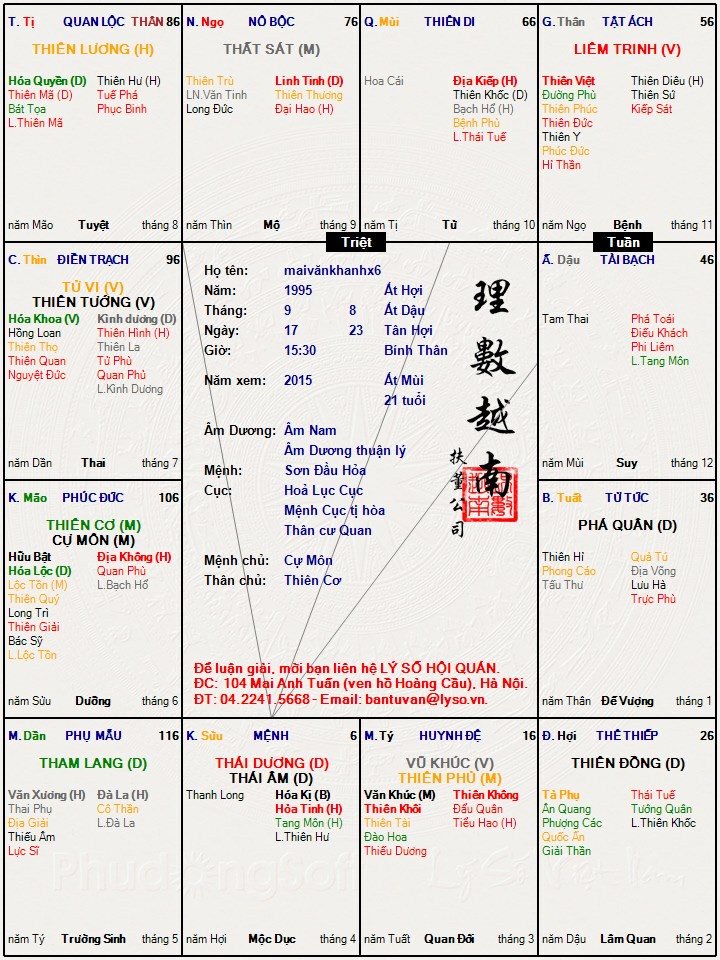 T. Tị QUAN LỘC THÂN 86
THIÊN LƯƠNG (H)
Hóa Quyền (D) Thiên Hư (H)
Thiên Mã (D) Tuế Phá
Bát Tọa Phục Binh
L.Thiên Mã
năm Mão Tuyệt tháng 8
N. Ngọ NÔ BỘC 76
THẤT SÁT (M)
Thiên Trù Linh Tinh (D)
LN.Văn Tinh Thiên Thương
Long Đức Đại Hao (H)
năm Thìn Mộ tháng 9
Q. Mùi THIÊN DI 66
Hoa Cái Địa Kiếp (H)
Thiên Khốc (D)
Bạch Hổ (H)
Bệnh Phù
L.Thái Tuế
năm Tị Tử tháng 10
G. Thân TẬT ÁCH 56
LIÊM TRINH (V)
Thiên Việt Thiên Diêu (H)
Đường Phù Thiên Sứ
Thiên Phúc Kiếp Sát
Thiên Đức
Thiên Y
Phúc Đức
Hỉ Thần
năm Ngọ Bệnh tháng 11
Triệt
Tuần
C. Thìn ĐIỀN TRẠCH 96
TỬ VI (V)
THIÊN TƯỚNG (V)
Hóa Khoa (V) Kình dương (D)
Hồng Loan Thiên Hình (H)
Thiên Thọ Thiên La
Thiên Quan Tử Phù
Nguyệt Đức Quan Phủ
L.Kình Dương
năm Dần Thai tháng 7
Họ tên: maivănkhanhx6
Năm: 1995 Ất Hợi
Tháng: 9 8 Ất Dậu
Ngày: 17 23 Tân Hợi
Giờ: 15:30 Bính Thân
Năm xem: 2015 Ất Mùi
21 tuổi
Âm Dương: Âm Nam
Âm Dương thuận lý
Mệnh: Sơn Đầu Hỏa
Cục: Hoả Lục Cục
Mệnh Cục tị hòa
Thân cư Quan
Mệnh chủ: Cự Môn
Thân chủ: Thiên Cơ
理數越南
扶董公司
Để luận giải, mời bạn liên hệ LÝ SỐ HỘI QUÁN.
ĐC: 104 Mai Anh Tuấn (ven hồ Hoàng Cầu), Hà Nội.
ĐT: 04.2241.5668 - Email: bantuvan@lyso.vn.
Ấ. Dậu TÀI BẠCH 46
Tam Thai Phá Toái
Điếu Khách
Phi Liêm
L.Tang Môn
năm Mùi Suy tháng 12
K. Mão PHÚC ĐỨC 106
THIÊN CƠ (M)
CỰ MÔN (M)
Hữu Bật Địa Không (H)
Hóa Lộc (D) Quan Phù
Lộc Tồn (M) L.Bạch Hổ
Thiên Quý
Long Trì
Thiên Giải
Bác Sỹ
L.Lộc Tồn
năm Sửu Dưỡng tháng 6
B. Tuất TỬ TỨC 36
PHÁ QUÂN (D)
Thiên Hỉ Quả Tú
Phong Cáo Địa Võng
Tấu Thư Lưu Hà
Trực Phù
năm Thân Đế Vượng tháng 1
M. Dần PHỤ MẪU 116
THAM LANG (D)
Văn Xương (H) Đà La (H)
Thai Phụ Cô Thần
Địa Giải L.Đà La
Thiếu Âm
Lực Sĩ
năm Tý Trường Sinh tháng 5
K. Sửu MỆNH 6
THÁI DƯƠNG (D)
THÁI ÂM (D)
Thanh Long Hóa Kị (B)
Hỏa Tinh (H)
Tang Môn (H)
L.Thiên Hư
năm Hợi Mộc Dục tháng 4
M. Tý HUYNH ĐỆ 16
VŨ KHÚC (V)
THIÊN PHỦ (M)
Văn Khúc (M) Thiên Không
Thiên Khôi Đẩu Quân
Thiên Tài Tiểu Hao (H)
Đào Hoa
Thiếu Dương
năm Tuất Quan Đới tháng 3
Đ. Hợi THÊ THIẾP 26
THIÊN ĐỒNG (D)
Tả Phụ Thái Tuế
Ân Quang Tướng Quân
Phượng Các L.Thiên Khốc
Quốc Ấn
Giải Thần
năm Dậu Lâm Quan tháng 2
Phudongsoft
Lý Số Việt Nam